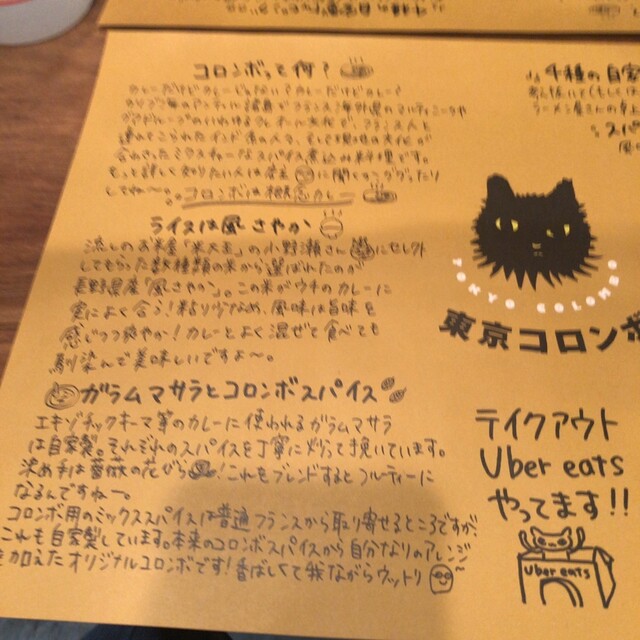 コロンボって何?
カレーだけどカレーじゃない?カレーだけどカレー?
カリブ海のアンティル諸島でフランス海外県のマルティニークや
グアドループのいわゆるクレオール文化で、フランス人と
連れてこられたインド系の人々、そして現地の文化が
合わさったミクスチャーなスパイス煮込み料理です。
もっと詳しく知りたい人は店主に聞くorググったり
してね〜。 コロンボは概念カレー
ライスは風さやか
流しのお米屋「米大王」の小野瀬さんにセレクト
してもらった数種類の米から選ばれたのが
長野県産「風さやか」。この米がウチのカレーに
実によく合う!粘り少なめ、風味は旨味を
感じつつ爽やか!カレーとよく混ぜて食べても
馴染んで美味しいですよ〜。
ガラムマサラとコロンボスパイス
エキゾチックキーマ等のカレーに使われるガラムマサラ
は自家製。それぞれのスパイスを丁寧に炒って挽いています。
決め手は薔薇の花びら!これをブレンドするとフルーティーに
なるんですね〜。
コロンボ用のミックススパイスは普通フランスから取り寄せるところですが、
これも自家製しています。本来のコロンボスパイスから自分なりのアレンジ
を加えたオリジナルコロンボです!香ばしくて我ながらウットリ
4種の自家
ラーメン屋さんの卓上
スパ
TOKYO COLOMBO
東京コロンボ
テイクアウト
Uber eats
やってます!!
Uber eats